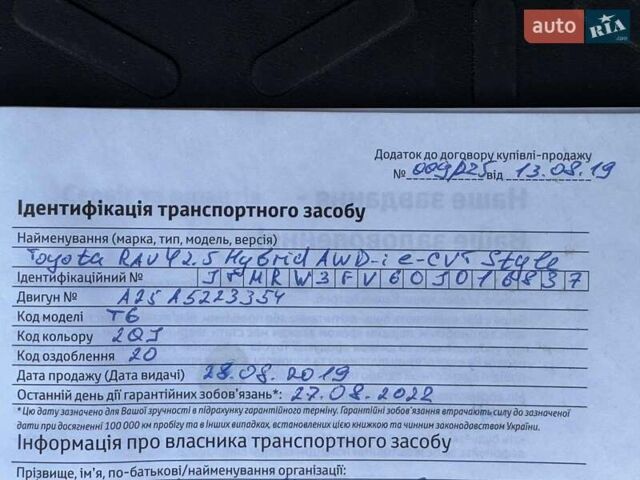 auto RIA.com
Додаток до договору купівлі-продажу
№ 009/25 від 13.08.19
Ідентифікація транспортного засобу
Найменування (марка, тип, модель, версія)
Toyota RAV4 2.5 Hybrid AWD-i e-CVT Style
Ідентифікаційний № JTMRW3FV60J016837
Двигун № A25 A5223354
Код моделі T6
Код кольору 2QJ
Код оздоблення 20
Дата продажу (Дата видачі) 28.08.2019
Останній день дії гарантійних зобов'язань*: 27.08.2022
*Цю дату зазначено для Вашої зручності в підрахунку гарантійного терміну. Гарантійні зобов'язання втрачають силу до зазначеної
дати при досягненні 100 000 км пробігу та в інших випадках, встановлених цією книжкою та чинним законодавством України.
Інформація про власника транспортного засобу
Прізвище, ім'я, по-батькові/найменування організації: